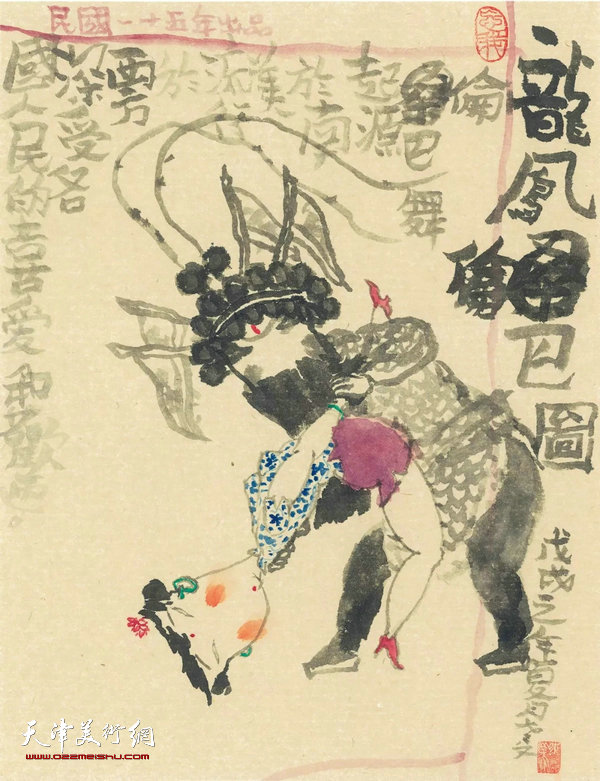 民國一十五年出品
龍鳳桑巴圖
倫
倫
桑巴舞
起源
於南
美
流行
於
雲
深受各
國人民的喜愛和歡迎
戊戌之年夏月
天津美術網
www.022meishu.com